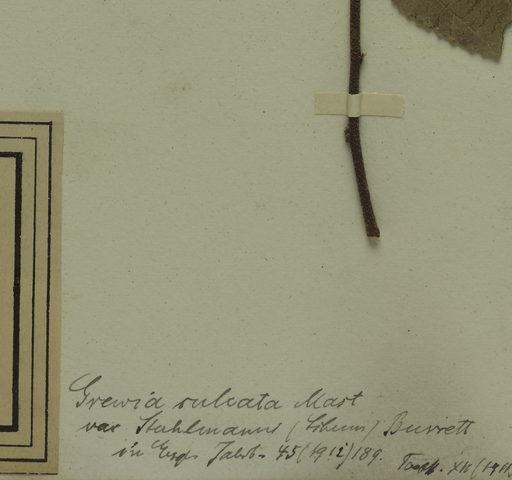 Grewia sulcata Mast
var Stuhlmanni (Schum) Burrett
in Engl Jahrb. 45 (1912) 189.